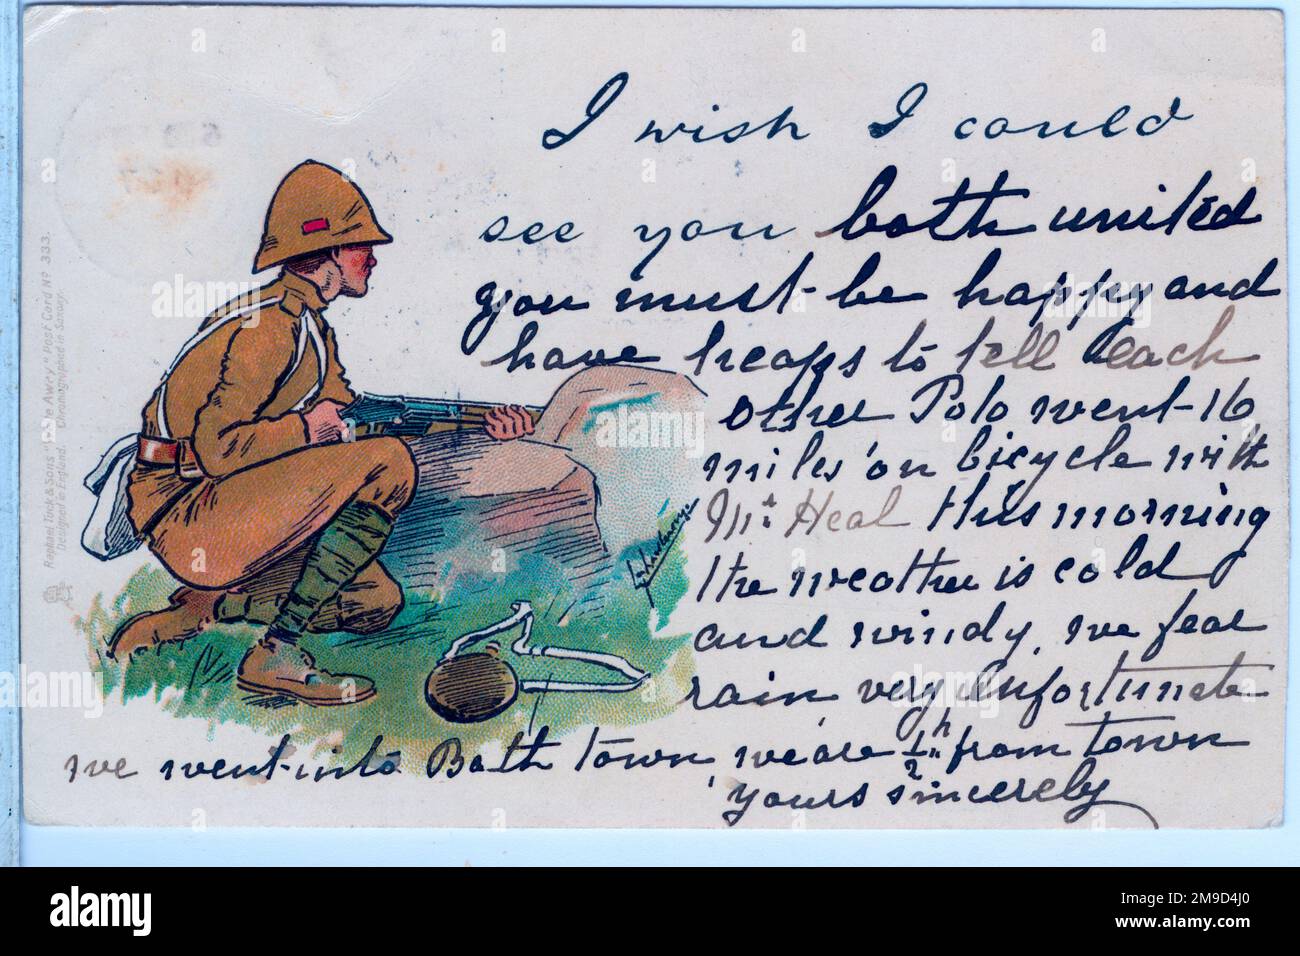 I wish I could
see you both united
you must be happy and
have heaps to tell each
other Polo went 16
miles on bicycle with
Mr. Heal this morning
the weather is cold
and windy, we fear
rain, very unfortunate
we went into Bath town, we are 1/2 h from town
yours sincerely
Raphael Tuck & Sons' "Write Away" Post Card No 333.
Designed in England. Chromographed in Saxony.
alamy
Image ID: 2M9D4J0
www.alamy.com